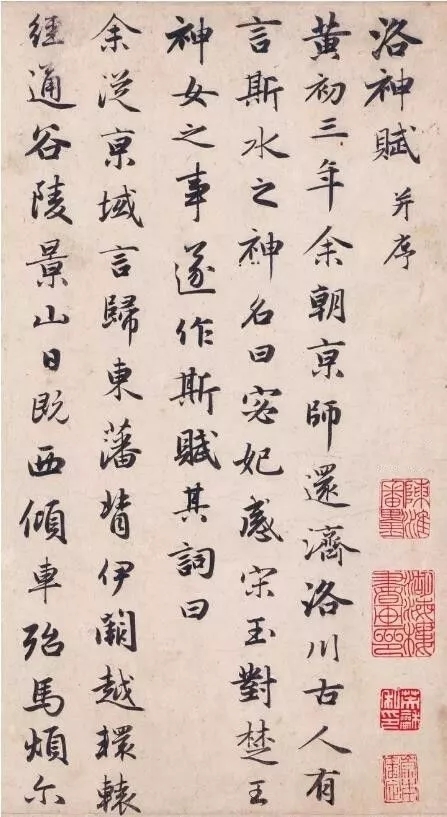 洛神賦 并序
黄初三年余朝京師還濟洛川古人有
言斯水之神名曰宓妃感宋玉對楚王
神女之事遂作斯賦其詞曰
余從京域言歸東藩背伊闕越轘轅
經通谷陵景山日既西傾車殆馬煩尓